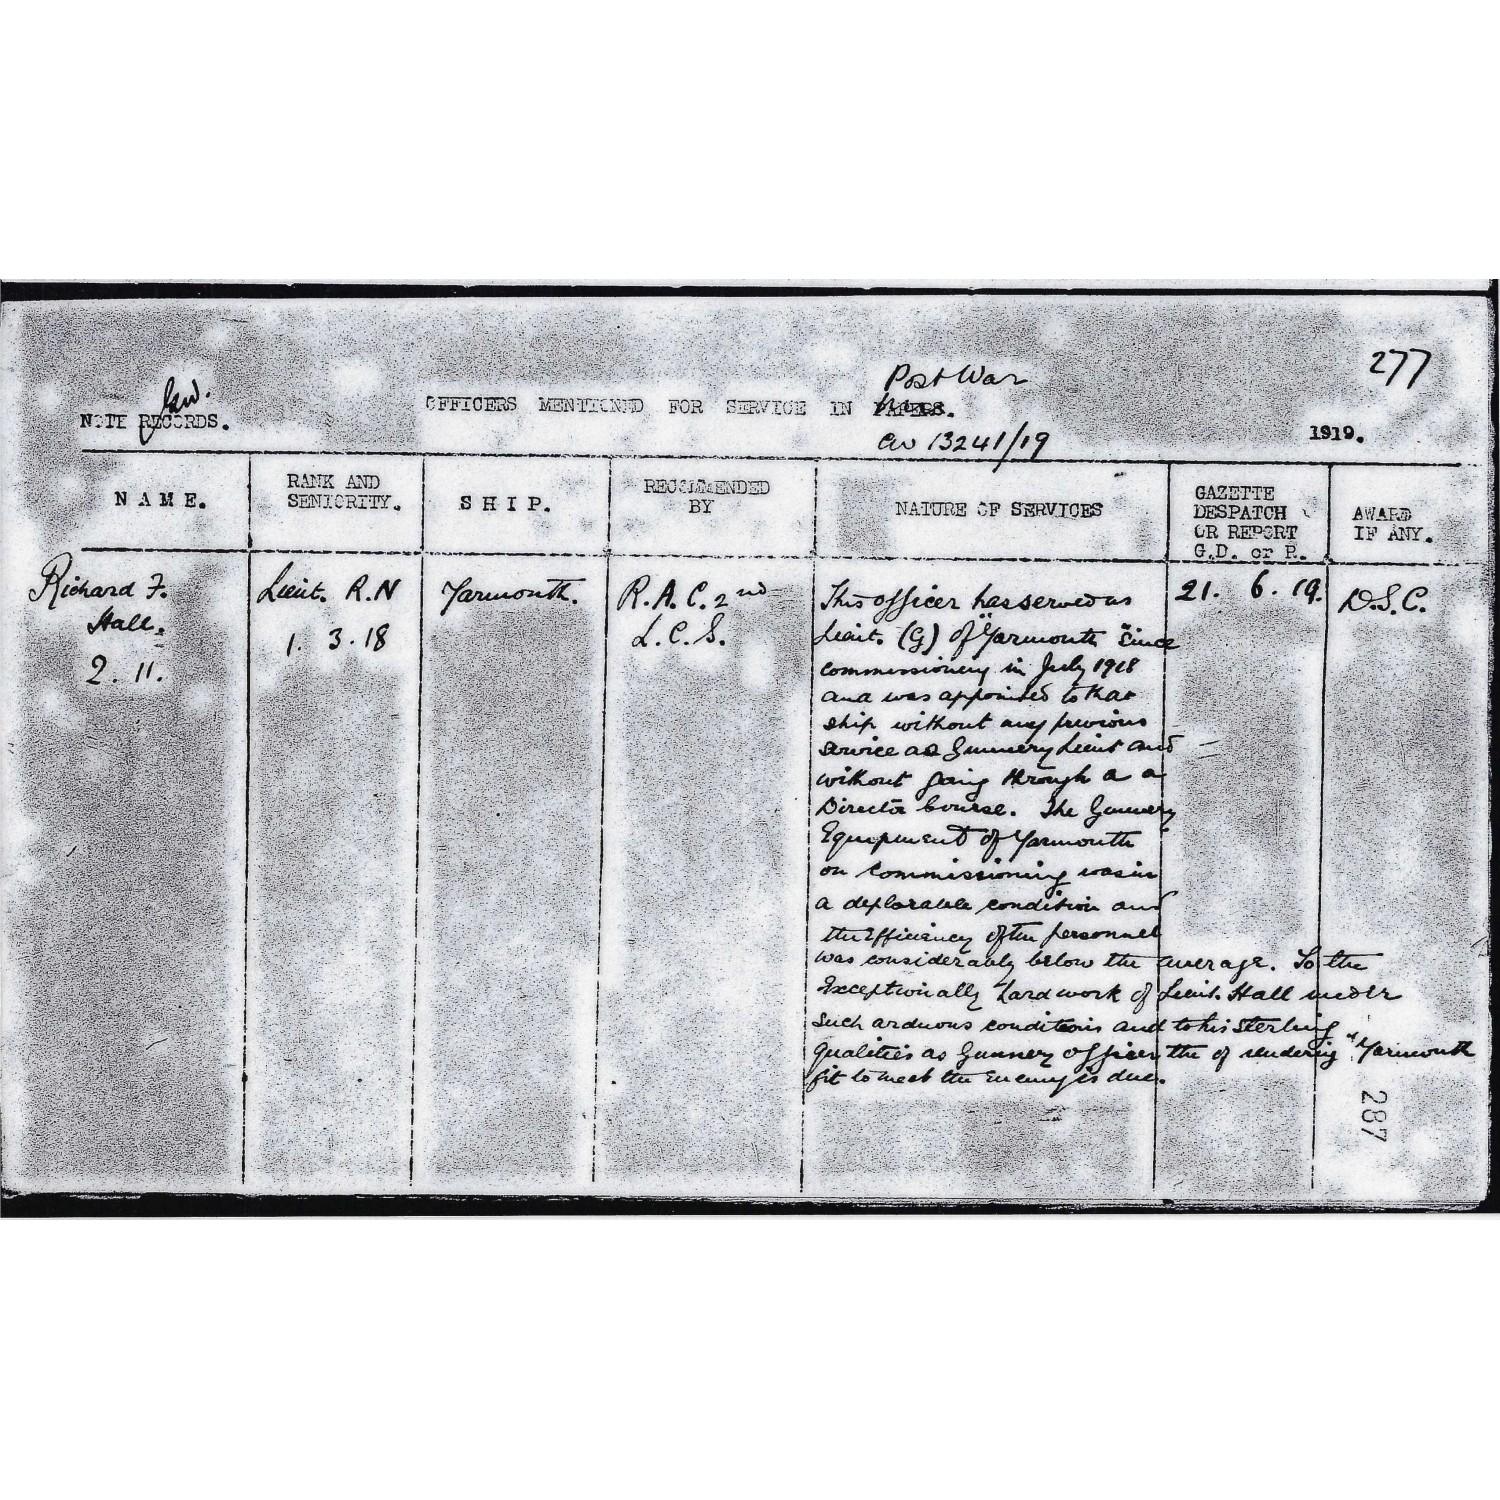 277
Post War
NOTE RECORDS.
OFFICERS MENTIONED FOR SERVICE IN PAPERS.
1919.
CW 13241/19
NAME.
RANK AND
SENIORITY.
SHIP.
RECOMMENDED
BY
NATURE OF SERVICES
GAZETTE
DESPATCH
OR REPORT
G.D. or R.
AWARD
IF ANY.
Richard F.
Hall.
2. 11.
Lieut. R.N
1. 3. 18
Yarmouth.
R.A.C. 2nd
L.C.S.
This officer has served as
Lieut. (G) of "Yarmouth" since
commissioning in July 1918
and was appointed to that
ship without any previous
service as Gunnery Lieut and
without going through a a
Director Course. The Gunnery
Equipment of Yarmouth
on commissioning was in
a deplorable condition and
the Efficiency of the personnel
was considerably below the average. To the
Exceptionally hard work of Lieut. Hall under
such arduous conditions and to his sterling
Qualities as Gunnery officer the of rendering "Yarmouth
fit to meet the Enemy is due.
21. 6. 19.
D.S.C.
287